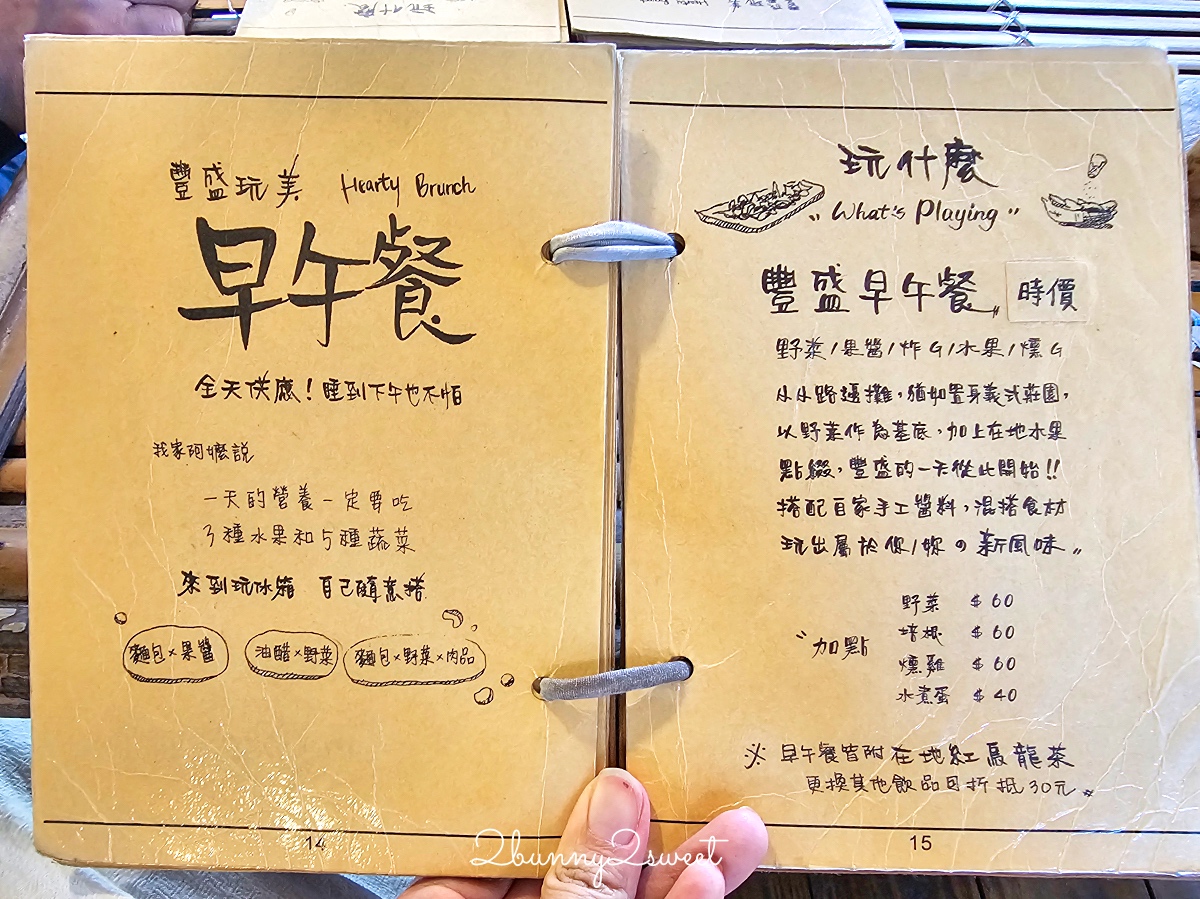 玩什麼
豐盛玩美 Hearty Brunch
早午餐
全天供應！睡到下午也不怕
我家阿嬤說
一天的營養一定要吃
3種水果和5種蔬菜
來到玩冰箱 自己隨意搭
麵包×果醬
油醋×野菜
麵包×野菜×肉品
14
玩什麼
"What's Playing"
豐盛早午餐〃 時價
野菜/果醬/炸G/水果/燻G
小小路邊攤，猶如置身義式莊園，
以野菜作為基底，加上在地水果
點綴，豐盛的一天從此開始!!
搭配自家手工醬料，混搭食材
玩出屬於你/妳の新風味〃
"加點
野菜 $60
培根 $60
燻雞 $60
水煮蛋 $40
※ 早午餐皆附在地紅烏龍茶
更換其他飲品可折抵30元〃
15
2bunny2sweet